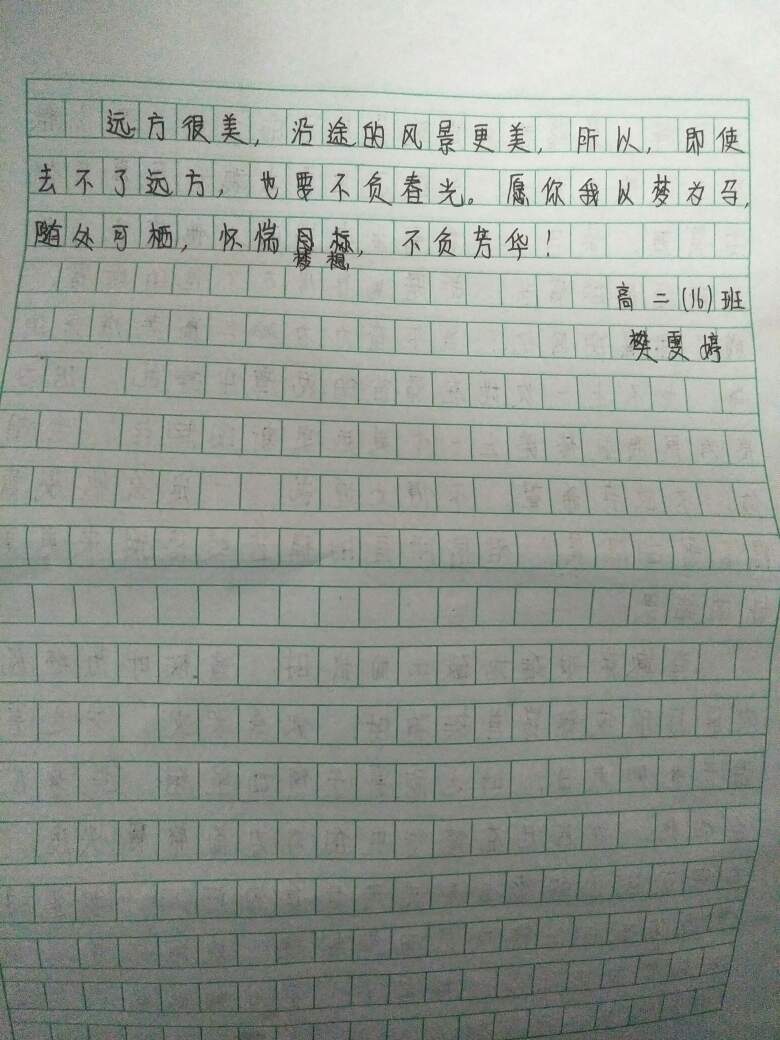 远方很美，沿途的风景更美，所以，即使
去不了远方，也要不负春光。愿你我以梦为马，
随处可栖，怀惴梦想，不负芳华！
高二(16)班
樊雯婷